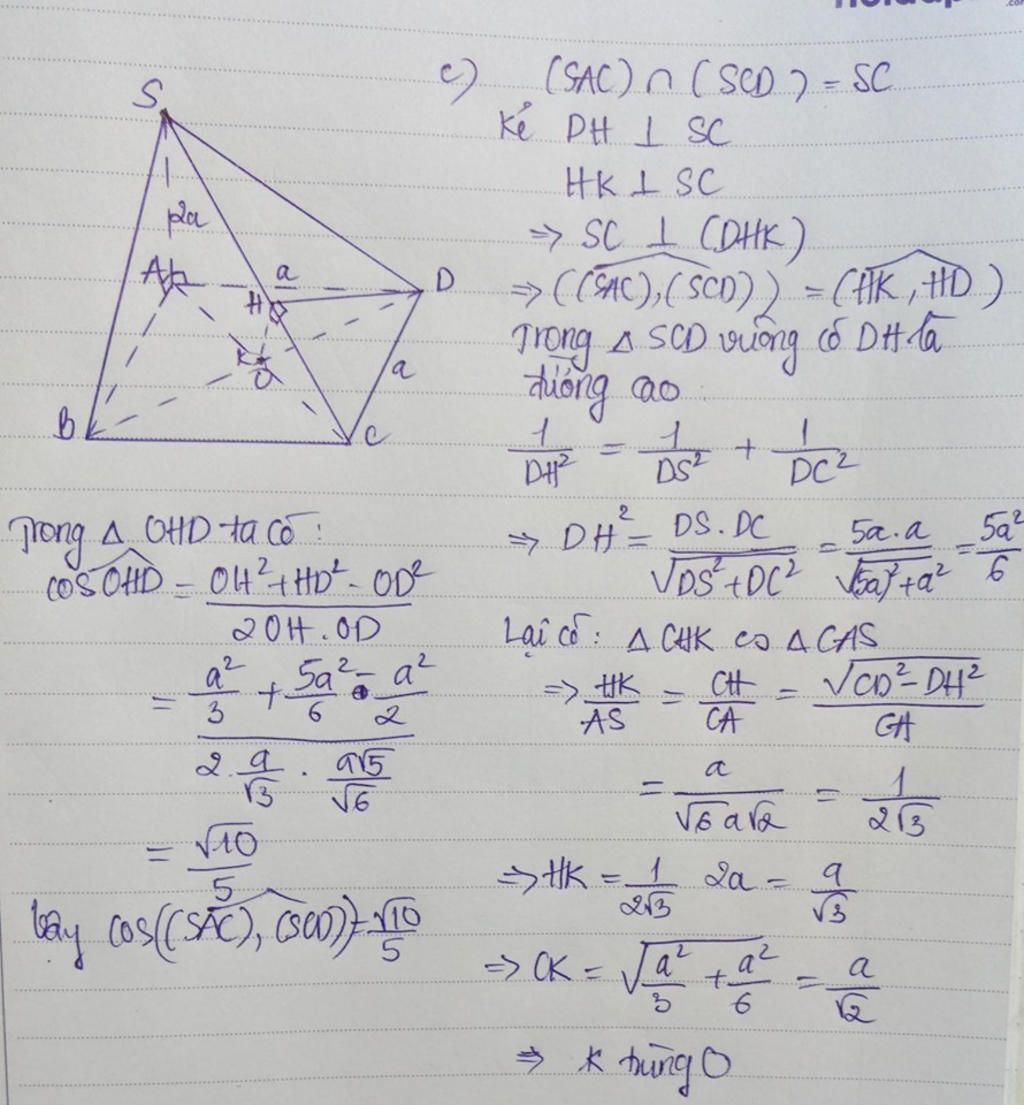 S
2a
A
a
D
H
K
O
a
B
C
c) (SAC) ∩ (SCD) = SC
Kẻ DH ⊥ SC
HK ⊥ SC
⇒ SC ⊥ (DHK)
⇒ ((SAC), (SCD)) = (HK, HD)
Trong △ SCD vuông có DH là
đường cao
1/DH² = 1/DS² + 1/DC²
⇒ DH² = DS.DC/√(DS²+DC²) = 5a.a/√(5a)²+a² = 5a²/6
Lại có: △ CHK ∽ △ CAS
⇒ HK/AS = CH/CA = √(CD²-DH²)/CA
= a/(√6 a√2) = 1/(2√3)
⇒ HK = 1/(2√3) 2a = a/√3
⇒ CK = √(a²/3 + a²/6) = a/√2
⇒ K trùng O
Trong △ OHD ta có:
cos OHD = (OH² + HD² - OD²)/(2OH.OD)
= (a²/3 + 5a²/6 - a²/2)/(2.a/√3 . a√5/√6)
= √10/5
Vậy cos((SAC), (SCD)) = √10/5